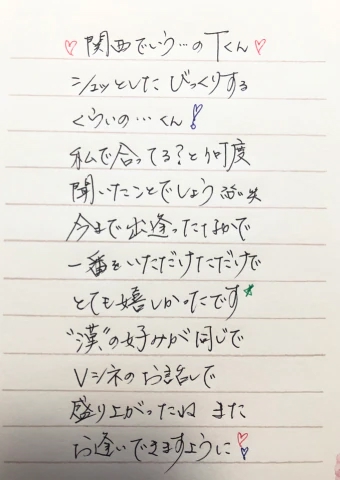 ♡関西でいう…のTくん♡
シュッとした びっくりする
くらいの…くん!
私で合ってる?と何度
聞いたことでしょう
今まで出逢ったなかで
一番をいただけただけで
とても嬉しかったです☆
"漢"の好みが同じで
Vシネのお話しで
盛り上がったね また
お逢いできますように